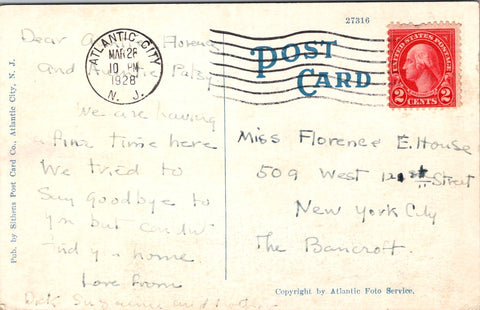 27316
POST CARD
ATLANTIC CITY
MAR 28
10 PM
1928
N. J.
UNITED STATES POSTAGE
2 CENTS 2
Dear Florence
and
We are having
fine time here
We tried to
Say goodbye to
you but couldn't
find you home.
Love from
Dick Suzanne and
Miss Florence E. House
509 West 121st Street
New York City
The Bancroft.
Pub. by Sithens Post Card Co., Atlantic City, N. J.
Copyright by Atlantic Foto Service.